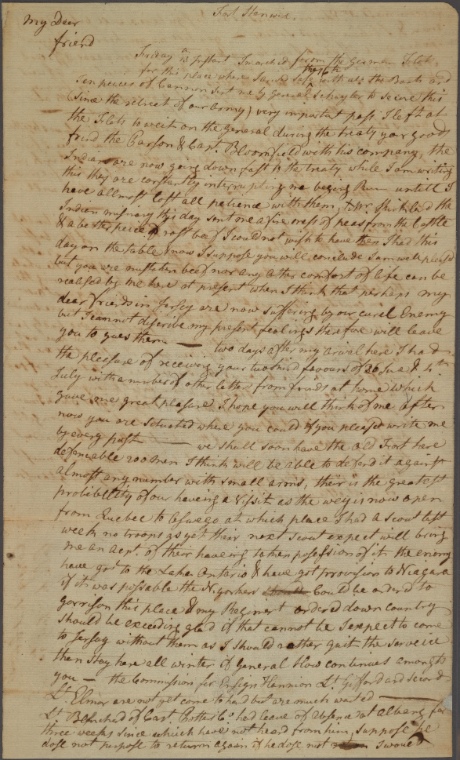 Fort Stanwix
My Dear
friend
Friday is passent I marched from the German Flats
for this place where I arived the 16th with all the Boats and
ten peaces of Cannon Sent me by General Schuyler to Secure this
(Since the retreat of our Army) very important pass I left at
the Flats to weit on the General during the treaty your good
freind the Parson & Capt. Bloomfield with his company, the
Indians are now going down past to the treaty while I am writing
this they are constantly interrupting me beging Rum untill I
have allmost lost all patience with them, Mr. Kirkland the
Indian misinary this day sent me a fine mess of peas from the Castle
& a better peace of roast beaf I could not wish to have then I had this
day on the table know I suppose you will conclude I am well pleased
but you are mistaken beaf nor any other comfort of life can be
realised by me here at present when I think that perhaps my
dear friends in Jersey are now suffering by our cruel Enemy
but I cannot discrive my present feelings therefore will leave
you to guess them — two days after my arival here I had
the pleasure of receiving your two kind favours of 26 June & 4th
July with a number of other letters from friends at home which
gave me great pleasure I hope you will think of me after
now you are situated where you can & if you please write me
by every post — we shall soon have the old Fort here
defenceable 200 men I think will be able to defend it against
almost any number with small arms, thair is the greatest
probibility of our haveing a Visit as the way is now open
from Quebec to Oswego at which place I had a scout last
week no troops as yet their next scout expect will bring
me an acpt. of their haveing taken posession of it the enemy
have got to the Lake Ontario & have got provision to Niagara
if it was possable the N. yorkers could be ordered to
gorrison this place & my Regment ordered down country
should be exceeding glad if that cannot be I expect to come
to Jersey without them as I should rather quit the Service
then stay here all winter if General How continues among
you — the Commission for Ensign Hennion Lt. Gifford and second
Lt. Elmer are not yet come to hand but are much wanted —
Lt. Blanchard of Capt. Potters Co. had leave of absence at albany for
three weeks since which have not heard from him, suppose he
dose not purpose to return again if he dose not I would